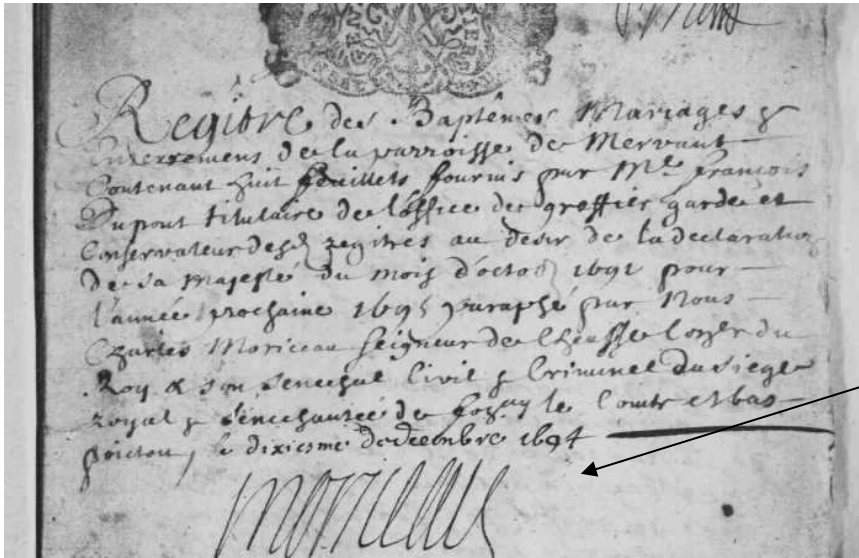 GEN
Regitre des Baptêmes Mariages &
Enterremens de la parroisse de Mervant
Contenant huit feuillets fournis par Me François
Dupont titulaire de l'office de greffier garde et
Conservateur desd regitres au desir de la declaration
de sa Majesté du mois d'octob 1691 pour
l'année prochaine 1695 paraphé par Nous
Charles Moriceau seigneur de Coner du
Roy & son senechal Civil & Criminel du siege
royal & senechaucée de fonay le Comte et bas
poictou, le dixiesme decembre 1694
Moriceau